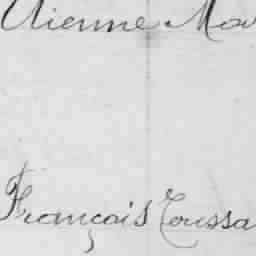 Etienne Mo
François Toussa